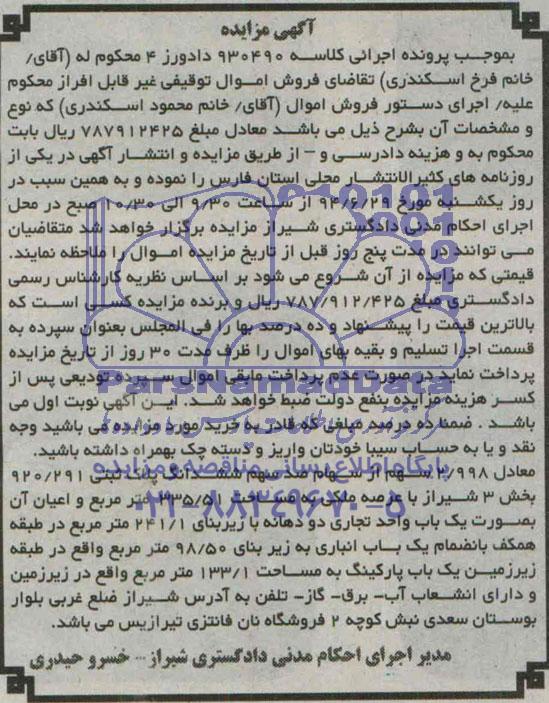 آگهی مزایده
بموجب پرونده اجرائی کلاسه ۹۳۰۴۹۰ دادورز ۴ محکوم له (آقای/
خانم فرخ اسکندری) تقاضای فروش اموال توقیفی غیر قابل افراز محکوم
علیه/ اجرای دستور فروش اموال (آقای/ خانم محمود اسکندری) که نوع
و مشخصات آن بشرح ذیل می باشد معادل مبلغ ۷۸۷۹۱۲۴۲۵ ریال بابت
محکوم به و هزینه دادرسی و – از طریق مزایده و انتشار آگهی در یکی از
روزنامه های کثیرالانتشار محلی استان فارس را نموده و به همین سبب در
روز یکشنبه مورخ ۹۴/۶/۲۹ از ساعت ۹/۳۰ الی ۱۰/۳۰ صبح در محل
اجرای احکام مدنی دادگستری شیراز مزایده برگزار خواهد شد متقاضیان
می توانند در مدت پنج روز قبل از تاریخ مزایده اموال را ملاحظه نمایند.
قیمتی که مزایده از آن شروع می شود بر اساس نظریه کارشناس رسمی
دادگستری مبلغ ۷۸۷/۹۱۲/۴۲۵ ریال و برنده مزایده کسی است که
بالاترین قیمت را پیشنهاد و ده درصد بها را فی المجلس بعنوان سپرده به
قسمت اجرا تسلیم و بقیه بهای اموال را ظرف مدت ۳۰ روز از تاریخ مزایده
پرداخت نماید در صورت عدم پرداخت مابقی اموال سپرده تودیعی پس از
کسر هزینه مزایده بنفع دولت ضبط خواهد شد. این آگهی نوبت اول می
باشد . ضمنا ده درصد مبلغی که قادر به خرید مورد مزایده می باشید وجه
نقد و یا به حساب سیبا خودتان واریز و دسته چک بهمراه داشته باشید.
معادل ۲/۹۹۸ سهم از سهام صد سهم ششدانگ پلاک ثبتی ۹۲۰/۲۹۱
بخش ۳ شیراز با عرصه ملکی به مساحت ۲۳۵/۵۱ متر مربع و اعیان آن
بصورت یک باب واحد تجاری دو دهانه با زیربنای ۲۴۱/۱ متر مربع در طبقه
همکف بانضمام یک باب انباری به زیر بنای ۹۸/۵۰ متر مربع واقع در طبقه
زیرزمین یک باب پارکینگ به مساحت ۱۳۳/۱ متر مربع واقع در زیرزمین
و دارای انشعاب آب- برق- گاز- تلفن به آدرس شیراز ضلع غربی بلوار
بوستان سعدی نبش کوچه ۲ فروشگاه نان فانتزی تیرازیس می باشد.
مدیر اجرای احکام مدنی دادگستری شیراز – خسرو حیدری
ParsNamadData
پایگاه اطلاع رسانی مناقصه و مزایده
۰۲۱-۸۸۳۴۹۶۷۰-۵